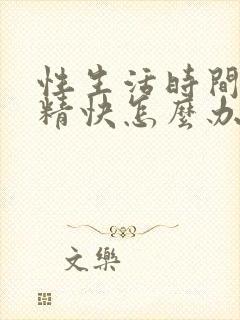 性生活時間
精快怎麼办
文樂